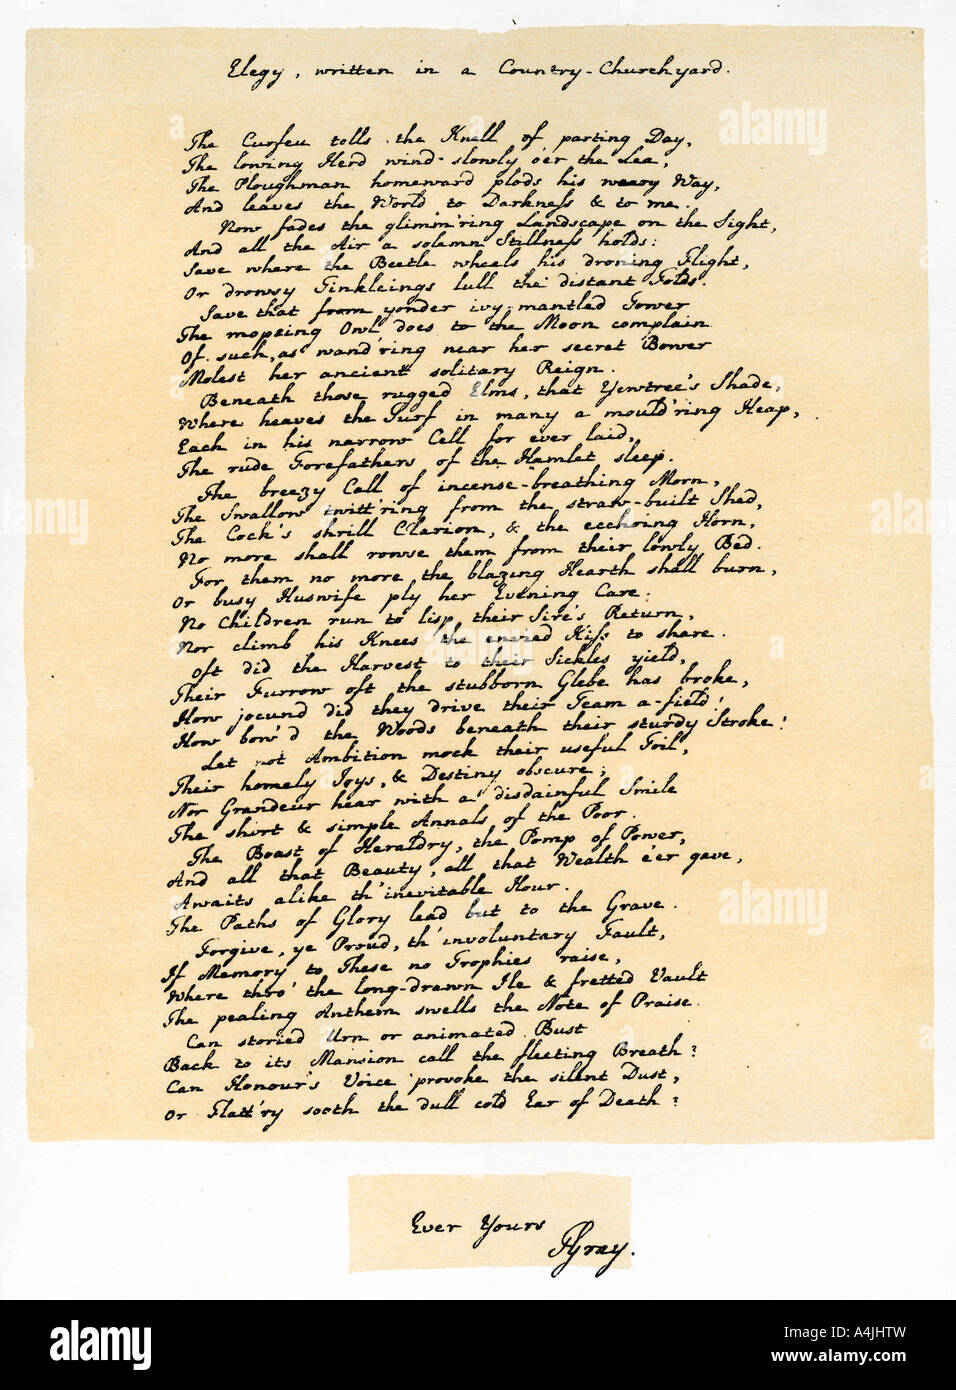 Elegy, written in a Country-Churchyard.
The Curfeu tolls the Knell of parting Day,
The lowing Herd wind slowly o'er the Lea,
The Ploughman homeward plods his weary Way,
And leaves the World to Darkness & to me.
Now fades the glimm'ring Landscape on the Sight,
And all the Air a solemn Stillness holds:
Save where the Beetle wheels his droning Flight,
Or drowsy Tinkleings lull the distant Folds.
Save that from yonder ivy-mantled Tower
The mopeing Owl does to the Moon complain
Of such, as wand'ring near her secret Bower
Molest her ancient solitary Reign.
Beneath those rugged Elms, that Yewtree's Shade,
Where heaves the Turf in many a mould'ring Heap,
Each in his narrow Cell for ever laid,
The rude Forefathers of the Hamlet sleep.
The breezy Call of incense-breathing Morn,
The Swallow twitt'ring from the straw-built Shed,
The Cock's shrill Clarion, & the ecchoing Horn,
No more shall rowse them from their lowly Bed.
For them no more the blazing Hearth shall burn,
Or busy Huswife ply her Evening Care:
No Children run to lisp their Sire's Return,
Nor climb his Knees the envied Kiss to share.
Oft did the Harvest to their Sickles yield,
Their Furrow oft the stubborn Glebe has broke,
How jocund did they drive their Team a-field!
How bow'd the Woods beneath their sturdy Stroke!
Let not Ambition mock their useful Toil,
Their homely Joys, & Destiny obscure;
Nor Grandeur hear with a disdainful Smile
The short & simple Annals of the Poor.
The Boast of Heraldry, the Pomp of Power,
And all that Beauty, all that Wealth e'er gave,
Awaits alike th' inevitable Hour.
The Paths of Glory lead but to the Grave.
Forgive, ye Proud, th' involuntary Fault,
If Memory to These no Trophies raise,
Where thro' the long-drawn Ile & fretted Vault
The pealing Anthem swells the Note of Praise.
Can storied Urn or animated Bust
Back to its Mansion call the fleeting Breath?
Can Honour's Voice provoke the silent Dust,
Or Flatt'ry sooth the dull cold Ear of Death?
Ever Yours
TGray.
alamy
Image ID: A4JHTW
www.alamy.com